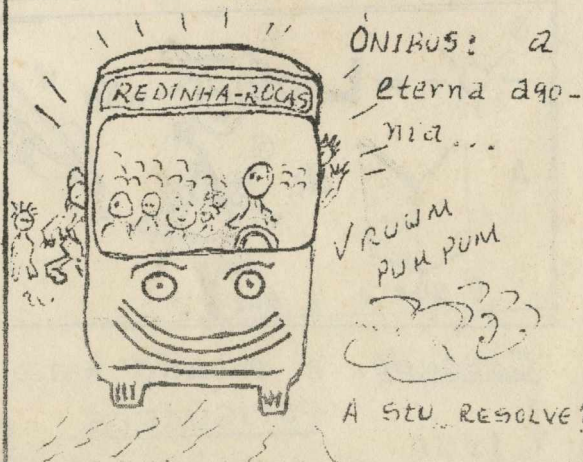 REDINHA-ROCAS
ÔNIBUS: a
eterna ago-
nia...
VRUUM
PUM PUM
A STU RESOLVE?